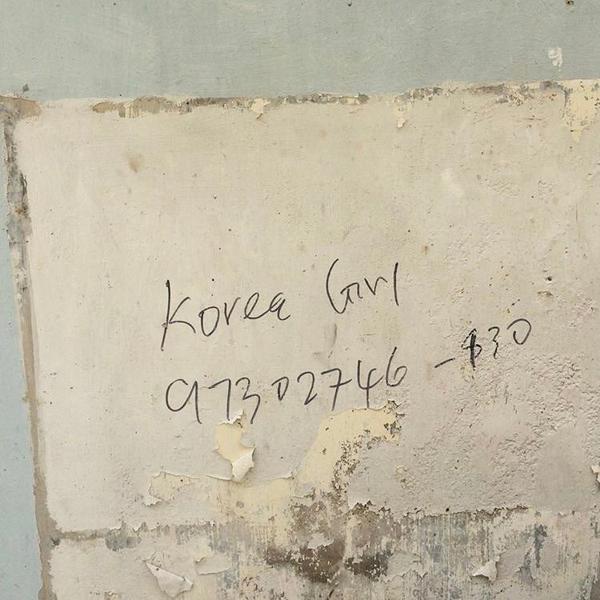 Korea Girl
97302746 - $30